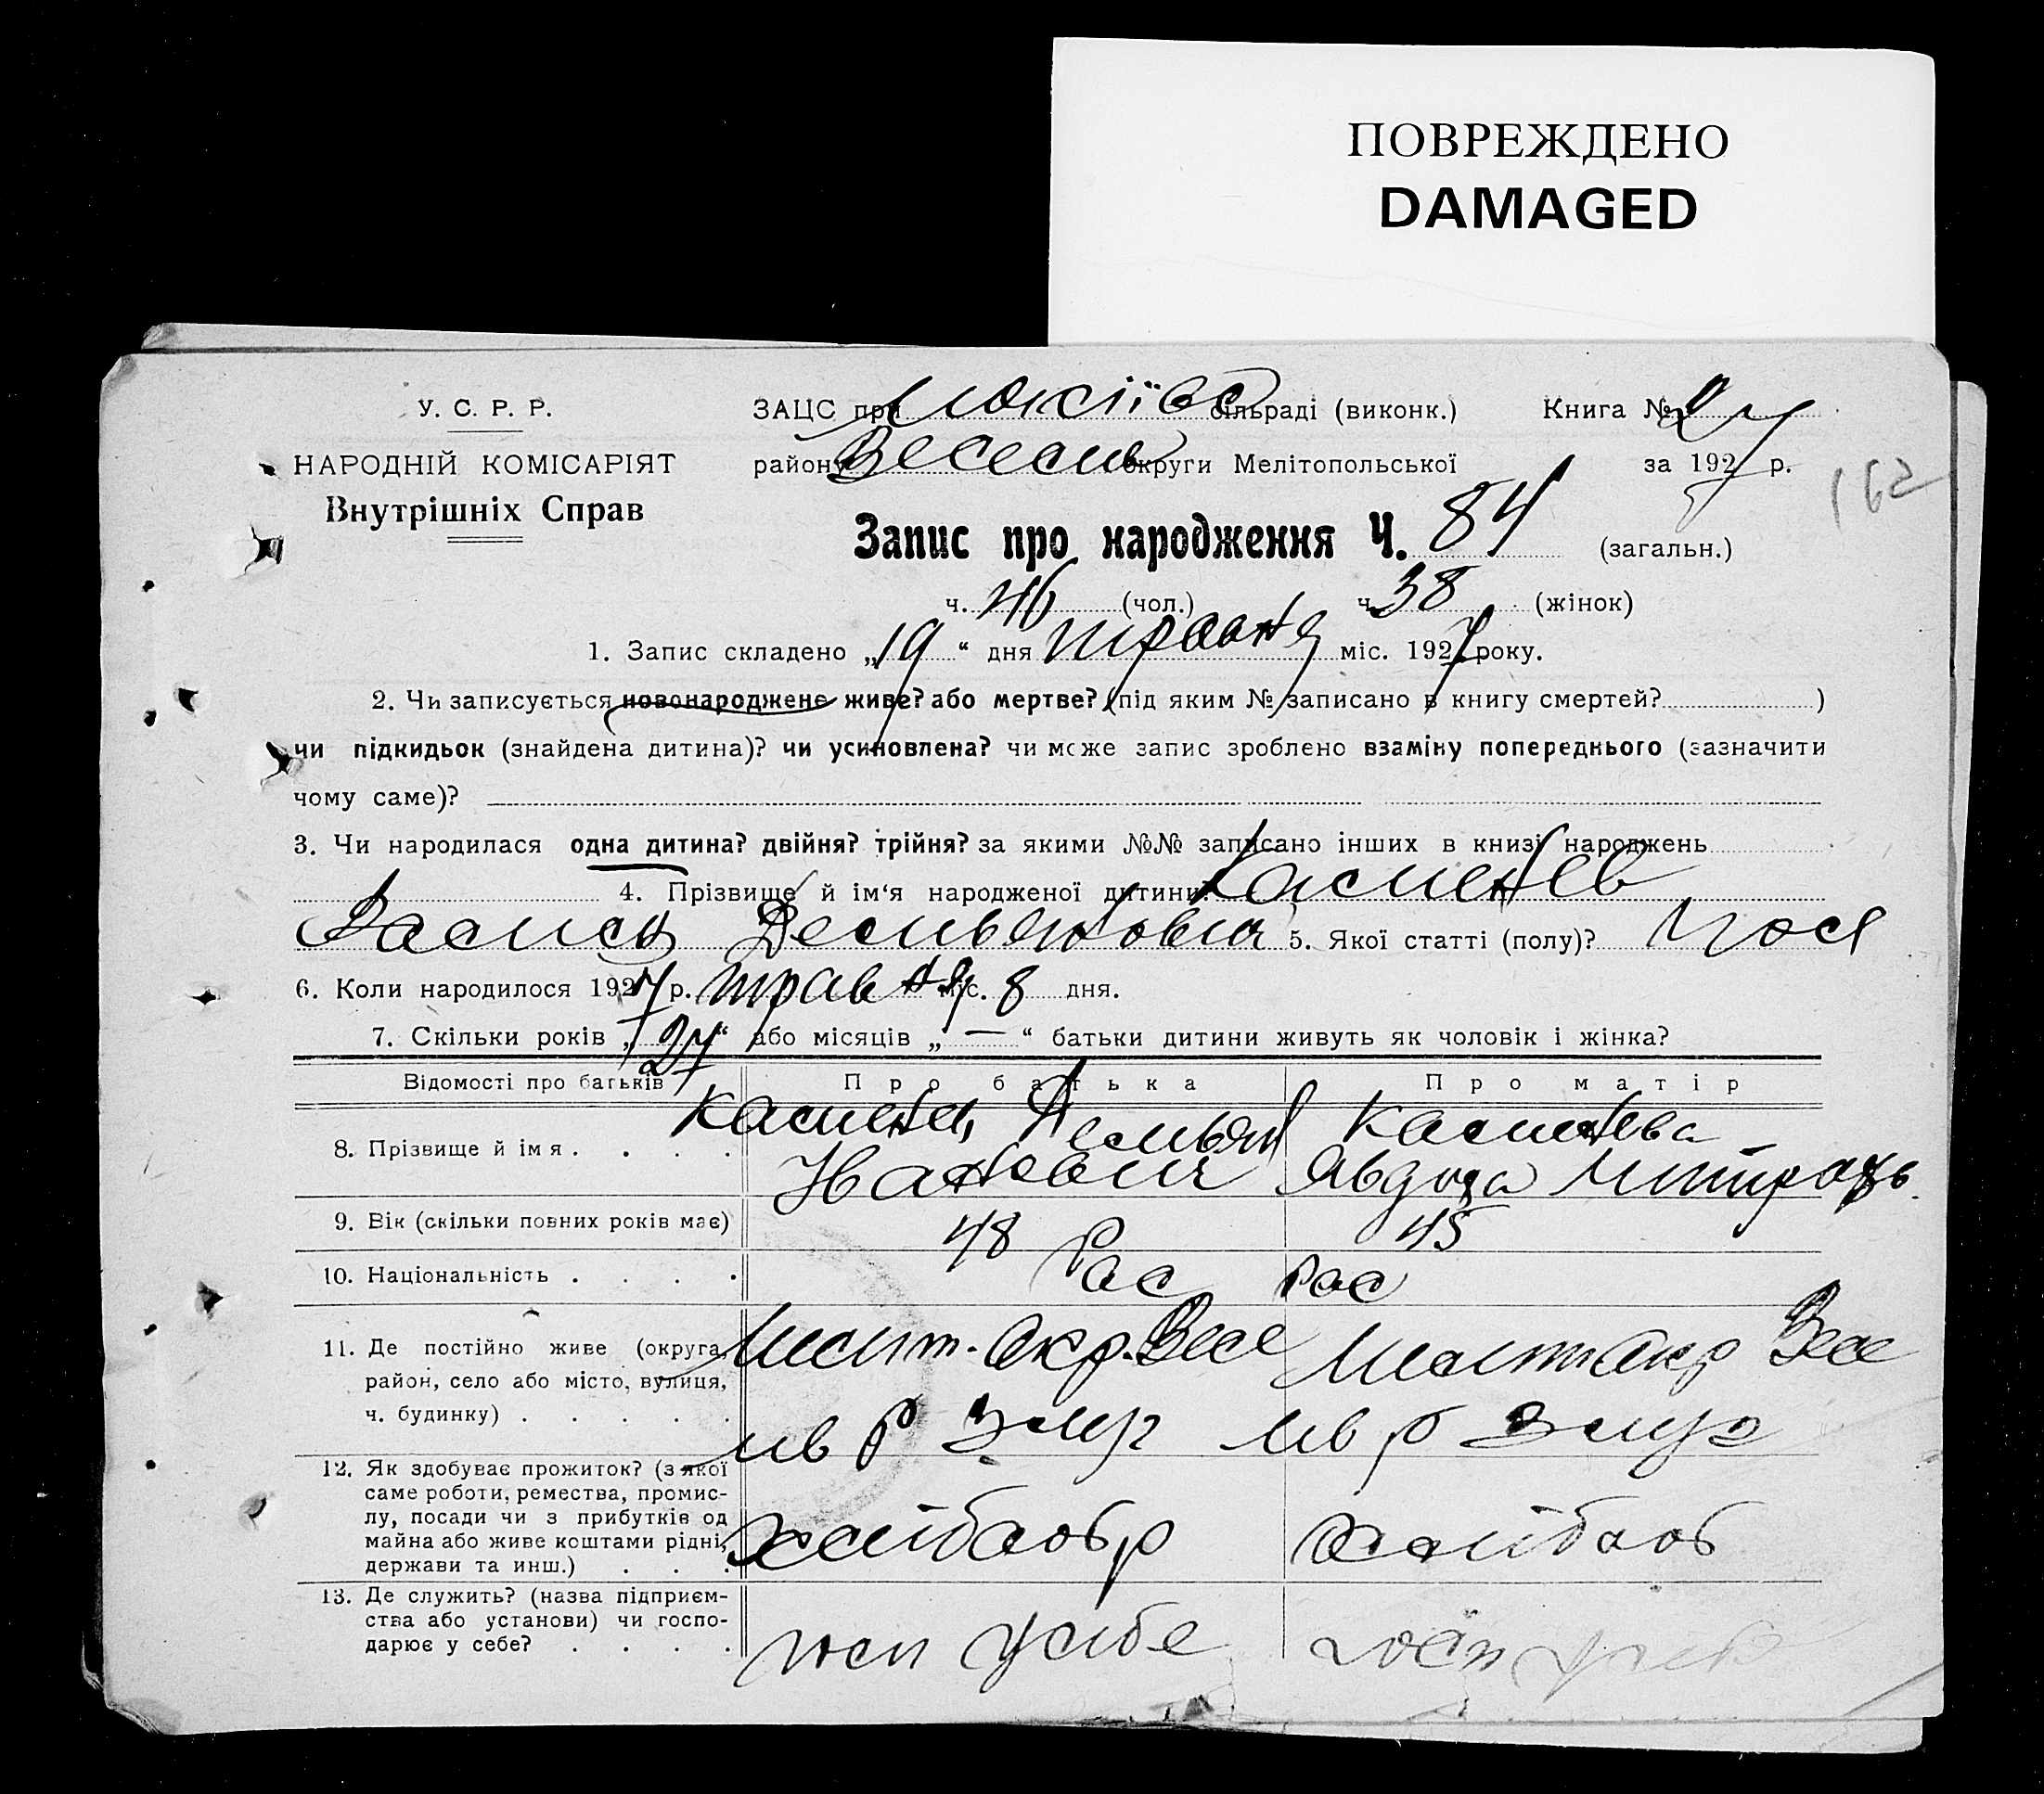 ПОВРЕЖДЕНО
DAMAGED
У. С. Р. Р.
НАРОДНІЙ КОМІСАРІЯТ
Внутрішніх Справ
ЗАЦС при сільраді (виконк.) Книга №
району округи Мелітопольської за 1927 р.
162
Запис про народження Ч. 84 (загальн.)
ч. 46 (чол.) ч. 38 (жінок)
1. Запис складено „19“ дня травня міс. 1927 року.
2. Чи записується новонароджене живе? або мертве? (під яким № записано в книгу смертей? )
чи підкидьок (знайдена дитина)? чи усиновлена? чи може запис зроблено взаміну попереднього (зазначити
чому саме)?
3. Чи народилася одна дитина? двійня? трійня? за якими №№ записано інших в книзі народжень
4. Прізвище й ім‘я народженої дитини?
5. Якої статті (полу)?
6. Коли народилося 1927 р. травня міс. 8 дня.
7. Скільки років „27“ або місяців „—“ батьки дитини живуть як чоловік і жінка?
Відомості про батьків Про батька Про матір
8. Прізвище й імя . . . . Демьян
Іванович Явдоха
9. Вік (скільки повних років має) 48 45
10. Національність . . . . Рос Рос
11. Де постійно живе (округа, Меліт. Окр. Весе Меліт Окр Весе
район, село або місто, вулиця,
ч. будинку) . . . . .
12. Як здобуває прожиток? (з якої
саме роботи, ремества, промис-
лу, посади чи з прибутків од
майна або живе коштами рідні, хлібороб хлібороб
держави та инш.) . . .
13. Де служить? (назва підприєм-
ства або установи) чи госпо-
дарює у себе? . . . .